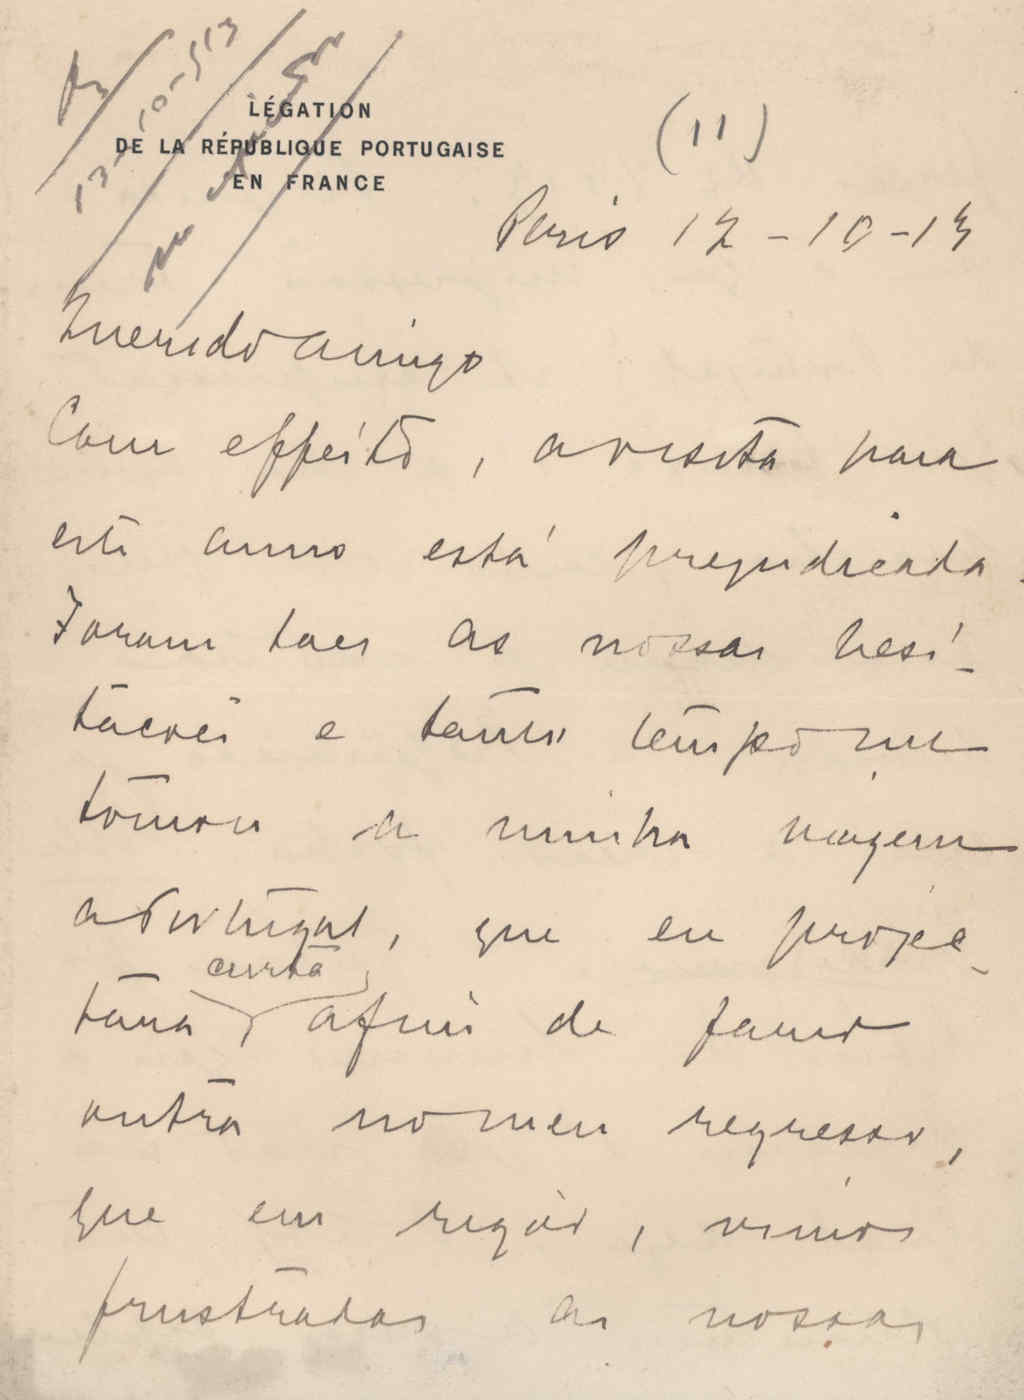 LÉGATION
DE LA RÉPUBLIQUE PORTUGAISE
EN FRANCE
(11)
13-10-913
Paris 12-10-13
Querido amigo
Com effeito, a visita para
este anno está prejudicada.
Foram taes as nossas hesi-
tacões e tanto tempo me
tomou a minha viagem
a Portugal, que eu projec-
tava curta, afim de fazer
outra no meu regresso,
que em rigor, vimos
frustradas as nossas